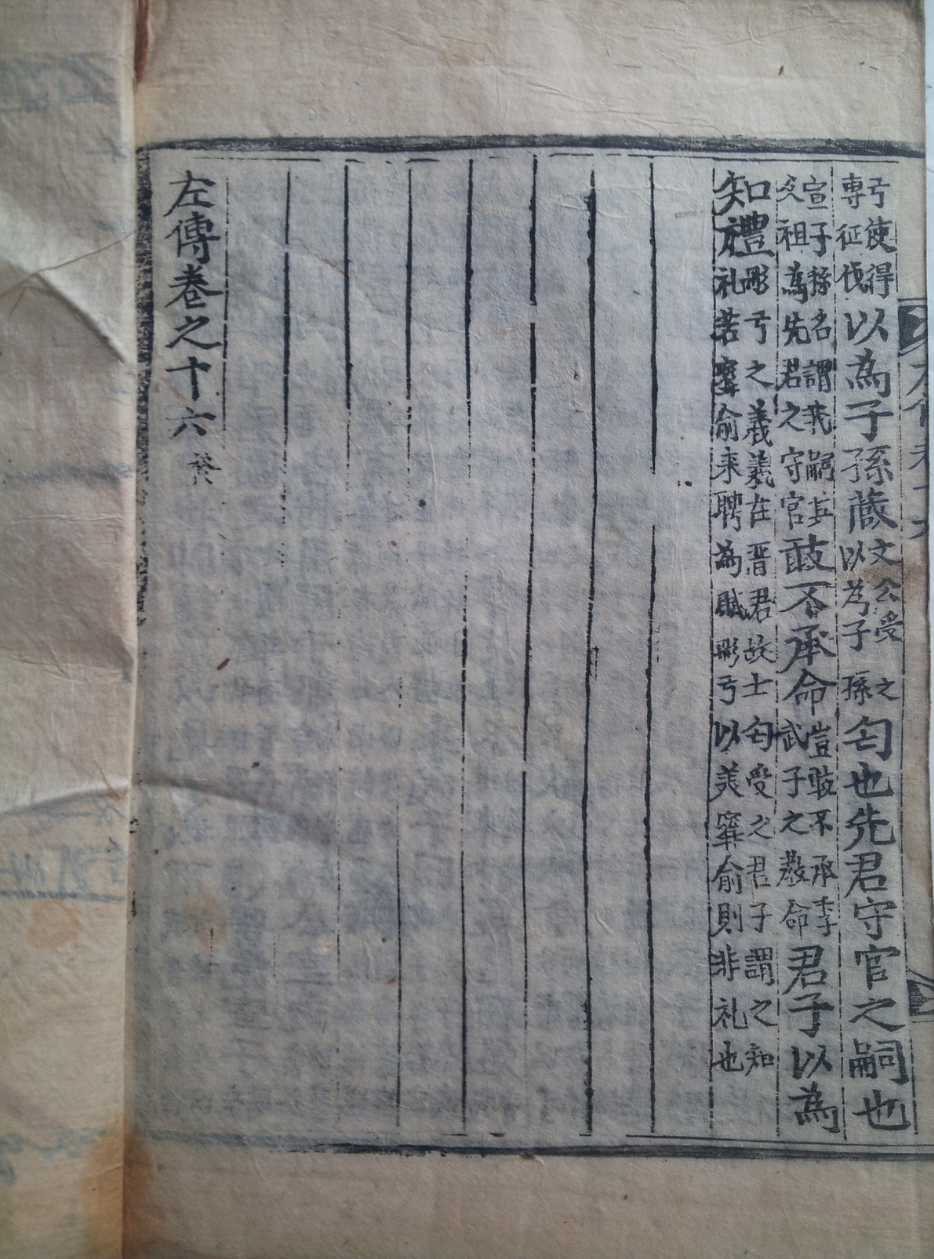 弓使得專征伐以為子孫藏文公受之以為子孫匄也先君守官之嗣也
宣子称名謂我嗣其父祖為先君之守官敢不承命豈敢不承季武子之敎命君子以為
知禮彤弓之義義在晋君故士匄受之君子謂之知礼若寗俞来聘為賦彤弓以美寗俞則非礼也
左傳卷之十六